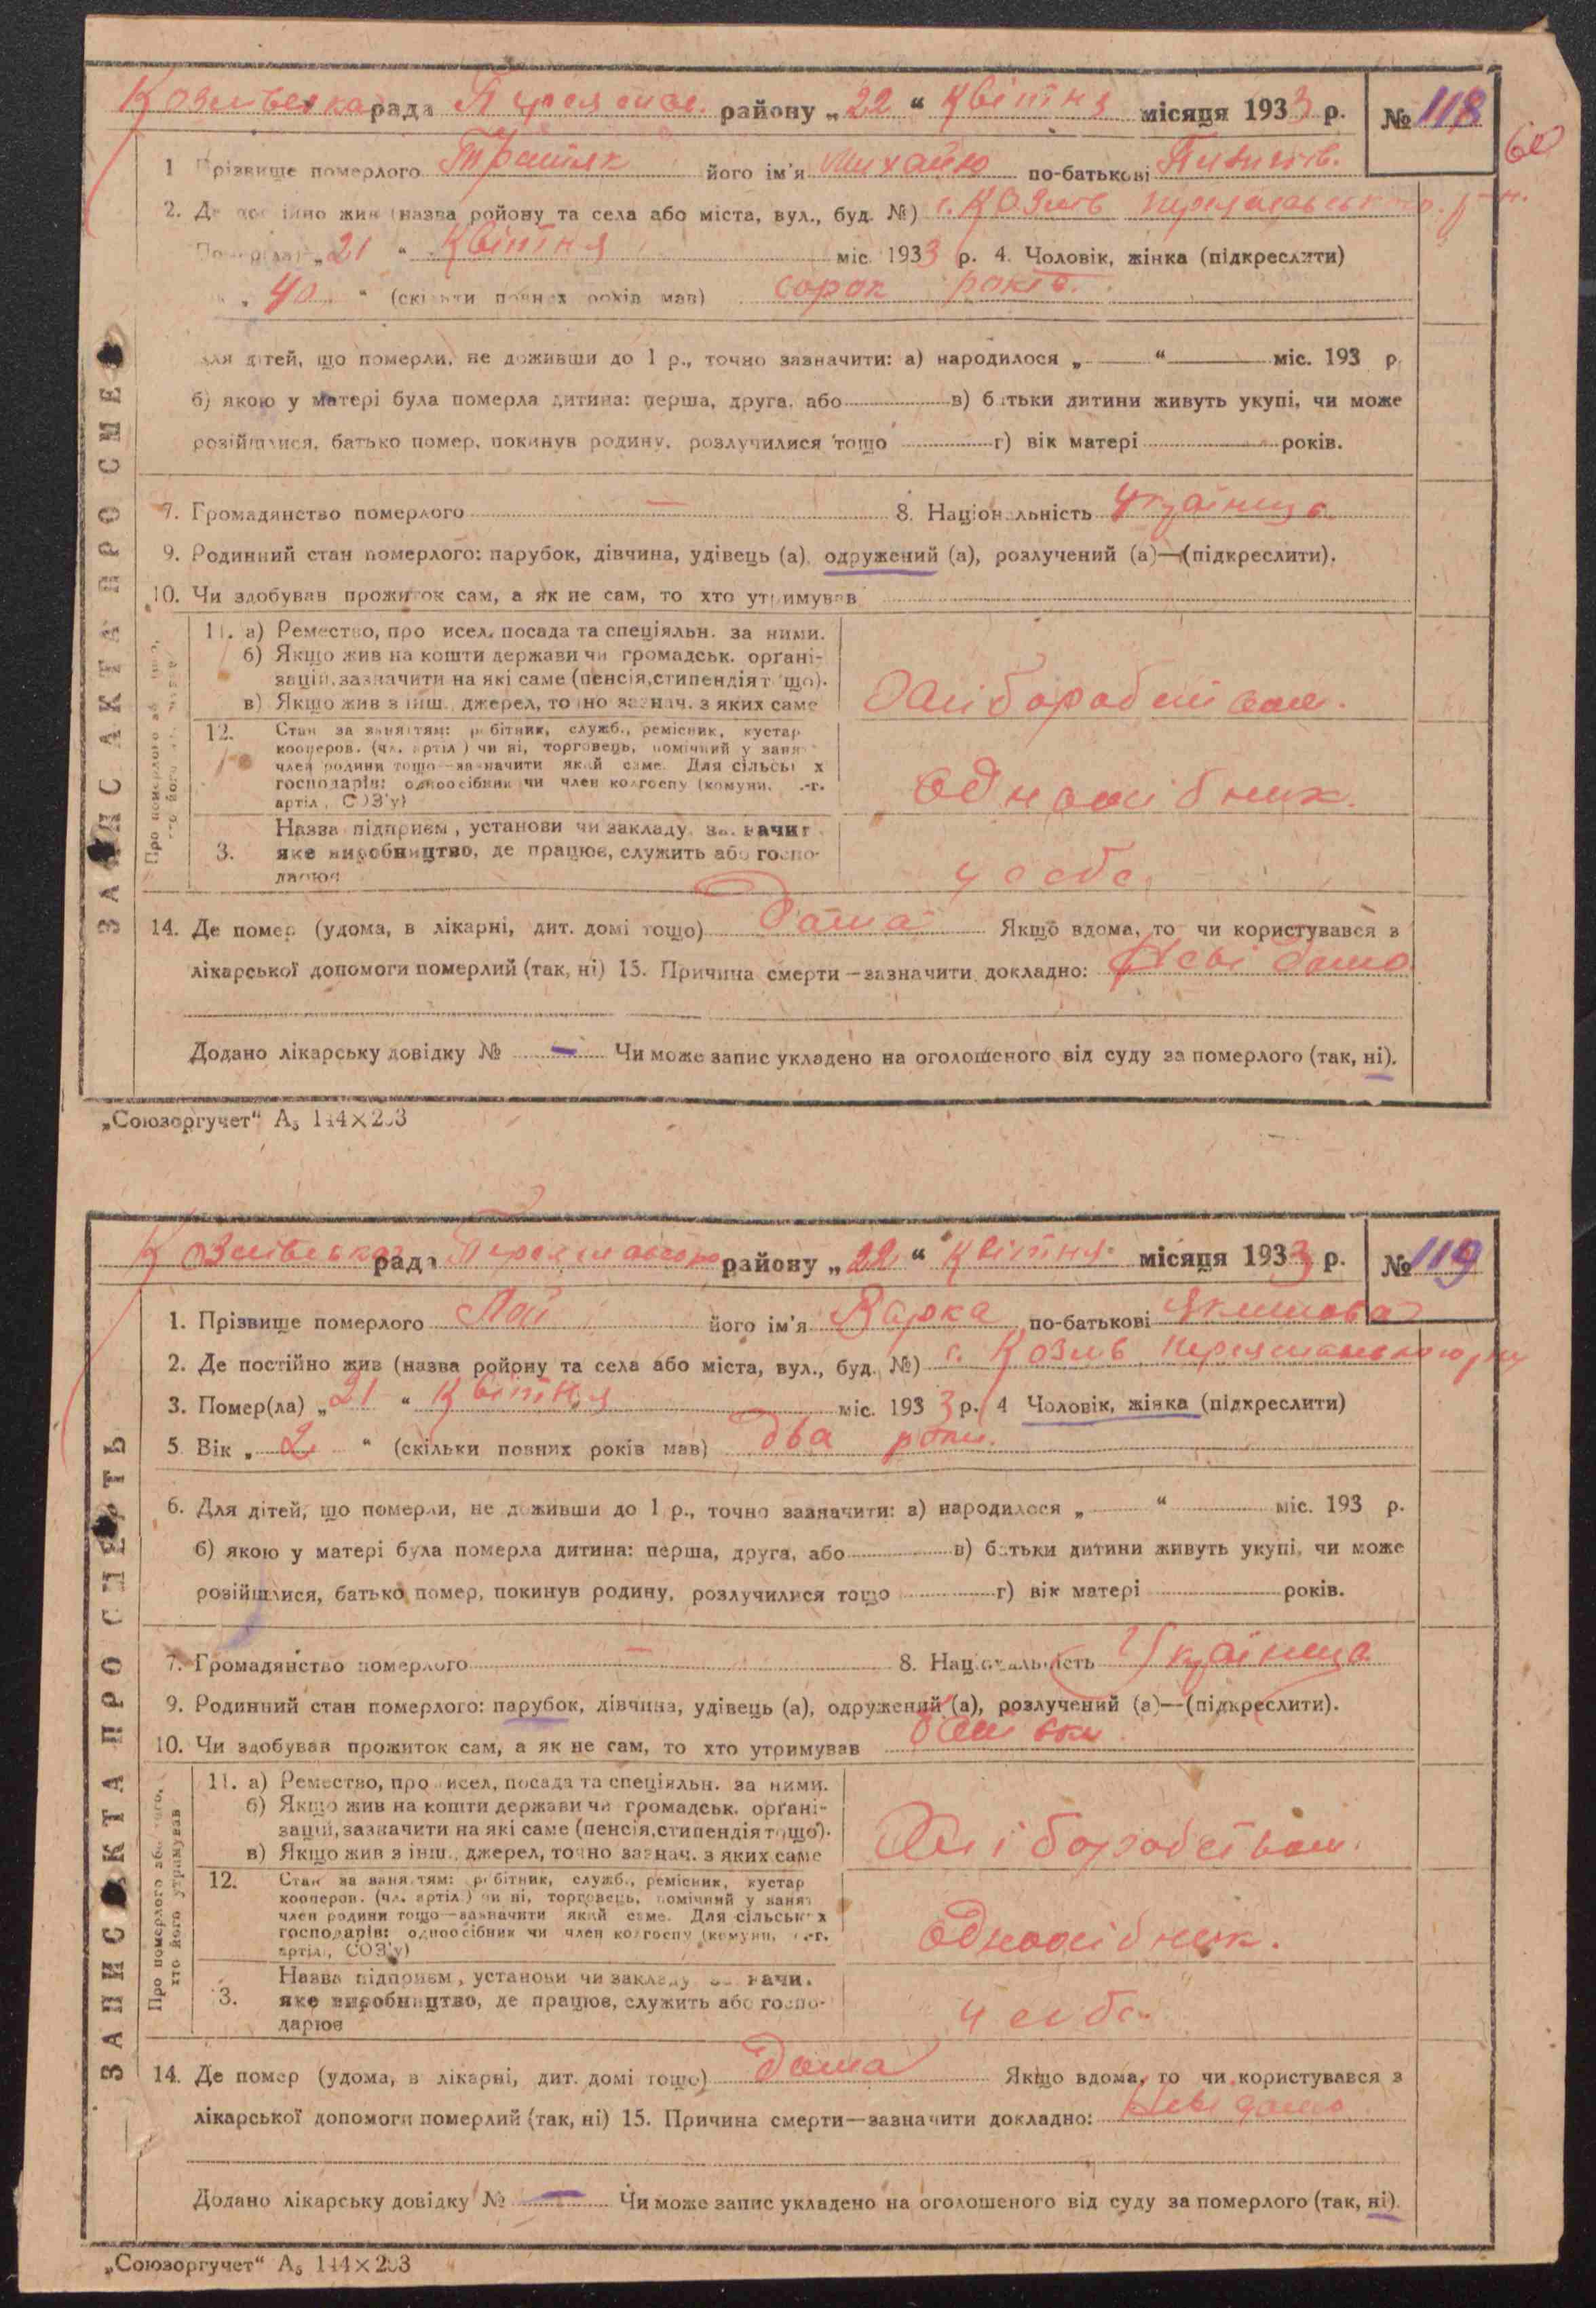 рада района „22“ Квітня місяця 1933 р. № 118
60
1 Прізвище померлого Третяк його ім'я Михайло по-батькові
2. Де постійно жив (назва ройону та села або міста, вул., буд. №) с. Козлів
Помер(ла) „21“ Квітня міс. 1933 р. 4. Чоловік, жінка (підкреслити)
„40“ (скільки повних років мав) сорок років
для дітей, що померли, не доживши до 1 р., точно зазначити: а) народилося „ “ міс. 193 р.
б) якою у матері була померла дитина: перша, друга, або в) батьки дитини живуть укупі, чи може
розійшлися, батько помер, покинув родину, розлучилися тощо г) вік матері років.
7. Громадянство померлого — 8. Національність Українець
9. Родинний стан померлого: парубок, дівчина, удівець (а), одружений (а), розлучений (а)—(підкреслити).
10. Чи здобував прожиток сам, а як не сам, то хто утримував
11. а) Ремество, промисел, посада та спеціяльн. за ними.
б) Якщо жив на кошти держави чи громадськ. орґані-
зацій, зазначити на які саме (пенсія, стипендія тощо).
в) Якщо жив з інш., джерел, точно зазнач. з яких саме
Хліборобством.
12. Стан за заняттям: робітник, служб., ремісник, кустар
кооперов. (чл. артіл.) чи ні, торговець, помічний у занят
член родини тощо—зазначити який саме. Для сільськ х
господарів: одноосібник чи член колгоспу (комуни, с.-г.
артіл., СОЗ'у)
одноосібник.
3. Назва підприєм, установи чи закладу, зазначит
яке виробництво, де працює, служить або госпо-
дарює
у себе.
14. Де помер (удома, в лікарні, дит. домі тощо) дома Якщо вдома, то чи користувався з
лікарської допомоги померлий (так, ні) 15. Причина смерти—зазначити докладно: Невідомо
Додано лікарську довідку № — Чи може запис укладено на оголошеного від суду за померлого (так, ні).
ЗАПИС АКТА ПРО СМЕ
„Союзоргучет“ А₅ 144×203
Козлівська рада району „22“ Квітня місяця 1933 р. № 119
1. Прізвище померлого його ім'я Варка по-батькові Якимова
2. Де постійно жив (назва ройону та села або міста, вул., буд. №) с. Козлів
3. Помер(ла) „21“ Квітня міс. 1933 р. 4 Чоловік, жінка (підкреслити)
5. Вік „2“ (скільки повних років мав) два роки.
6. Для дітей, що померли, не доживши до 1 р., точно зазначити: а) народилося „ “ міс. 193 р.
б) якою у матері була померла дитина: перша, друга, або в) батьки дитини живуть укупі, чи може
розійшлися, батько помер, покинув родину, розлучилися тощо г) вік матері років.
7. Громадянство померлого — 8. Національність Українца
9. Родинний стан померлого: парубок, дівчина, удівець (а), одружений (а), розлучений (а)—(підкреслити).
10. Чи здобував прожиток сам, а як не сам, то хто утримував батьки
11. а) Ремество, промисел, посада та спеціяльн. за ними.
б) Якщо жив на кошти держави чи громадськ. орґані-
зацій, зазначити на які саме (пенсія, стипендія тощо).
в) Якщо жив з інш., джерел, точно зазнач. з яких саме
Хліборобством.
12. Стан за заняттям: робітник, служб., ремісник, кустар
кооперов. (чл. артіл.) чи ні, торговець, помічний у занят
член родини тощо—зазначити який саме. Для сільськ х
господарів: одноосібник чи член колгоспу (комуни, с.-г.
артіл., СОЗ'у)
одноосібник.
3. Назва підприєм, установи чи закладу зазначи.
яке виробництво, де працює, служить або госпо-
дарює
у себе.
14. Де помер (удома, в лікарні, дит. домі тощо) дома Якщо вдома, то чи користувався з
лікарської допомоги померлий (так, ні) 15. Причина смерти—зазначити докладно: Невідомо
Додано лікарську довідку № — Чи може запис укладено на оголошеного від суду за померлого (так, ні).
ЗАПИС АКТА ПРО СМЕРТЬ
Про померлого або того, хто його утримував
„Союзоргучет“ А₅ 144×203